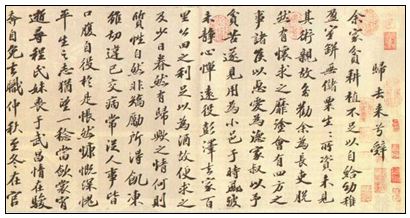 歸去来兮辭
余家貧耕植不足以自給幼稚
盈室缾無儲粟生生所資未見
其術親故多勸余為長吏脱
然有懷求之靡途會有四方之
事諸侯以惠愛為德家叔以予
貧苦遂見用為小邑于時風波
未静心憚遠役彭澤去家百
里公田之利足以為酒故便求之
及少日眷然有歸歟之情何則
質性自然非矯勵所得飢凍
雖切違己交病嘗從人事皆
口腹自役於是悵然慷慨深愧
平生之志猶望一稔當歛裳宵
逝尋程氏妹喪于武昌情在駿
奔自免去職仲秋至冬在官